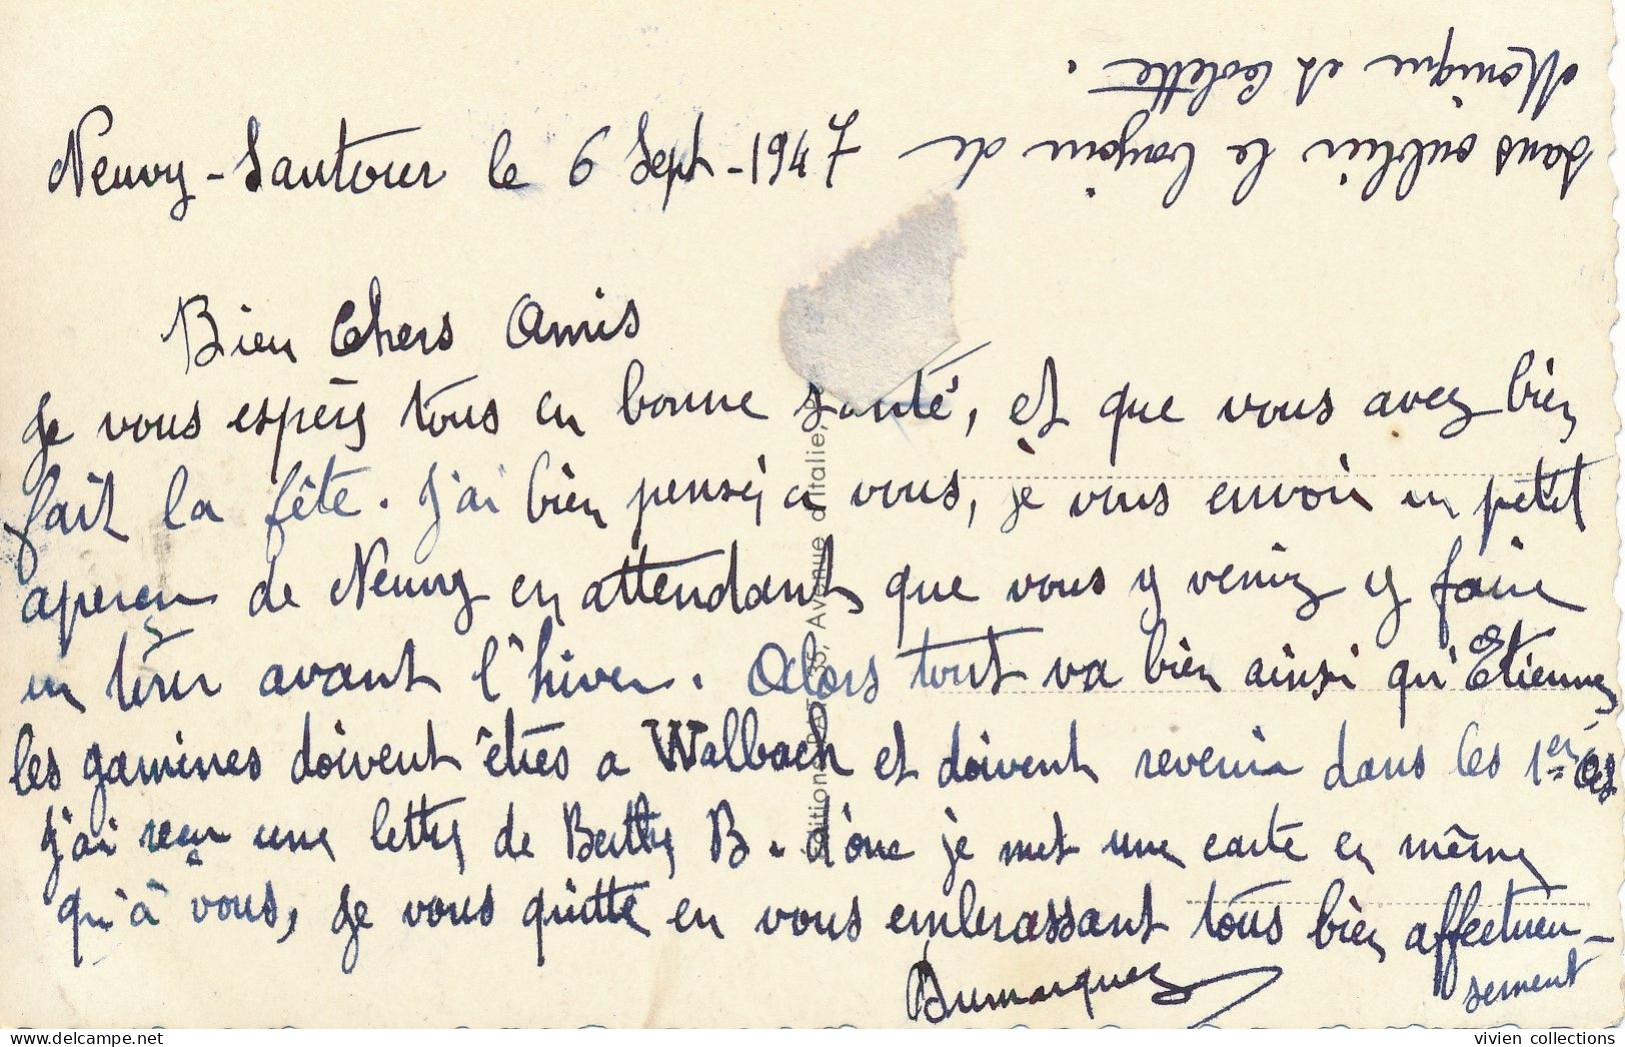 Neuvy-Sautour le 6 Sept-1947
Bien Chers Amis
Je vous espère tous en bonne santé, et que vous avez bien
fait la fête. J'ai bien pensé a vous, je vous envoie un petit
aperçu de Neuvy en attendant que vous y veniez y faire
un tour avant l'hiver. Alors tout va bien ainsi qu'Etienne,
les gamines doivent êtres a Walbach et doivent revenir dans les 1er
J'ai reçu une lettre de B. donc je met une carte en même
qu'à vous, je vous quitte en vous embrassant tous bien affectueu-
sement
Dumarquez
sans oublier le de
Monique et Colette.
Editions 35, Avenue d'Italie,
vivien collections